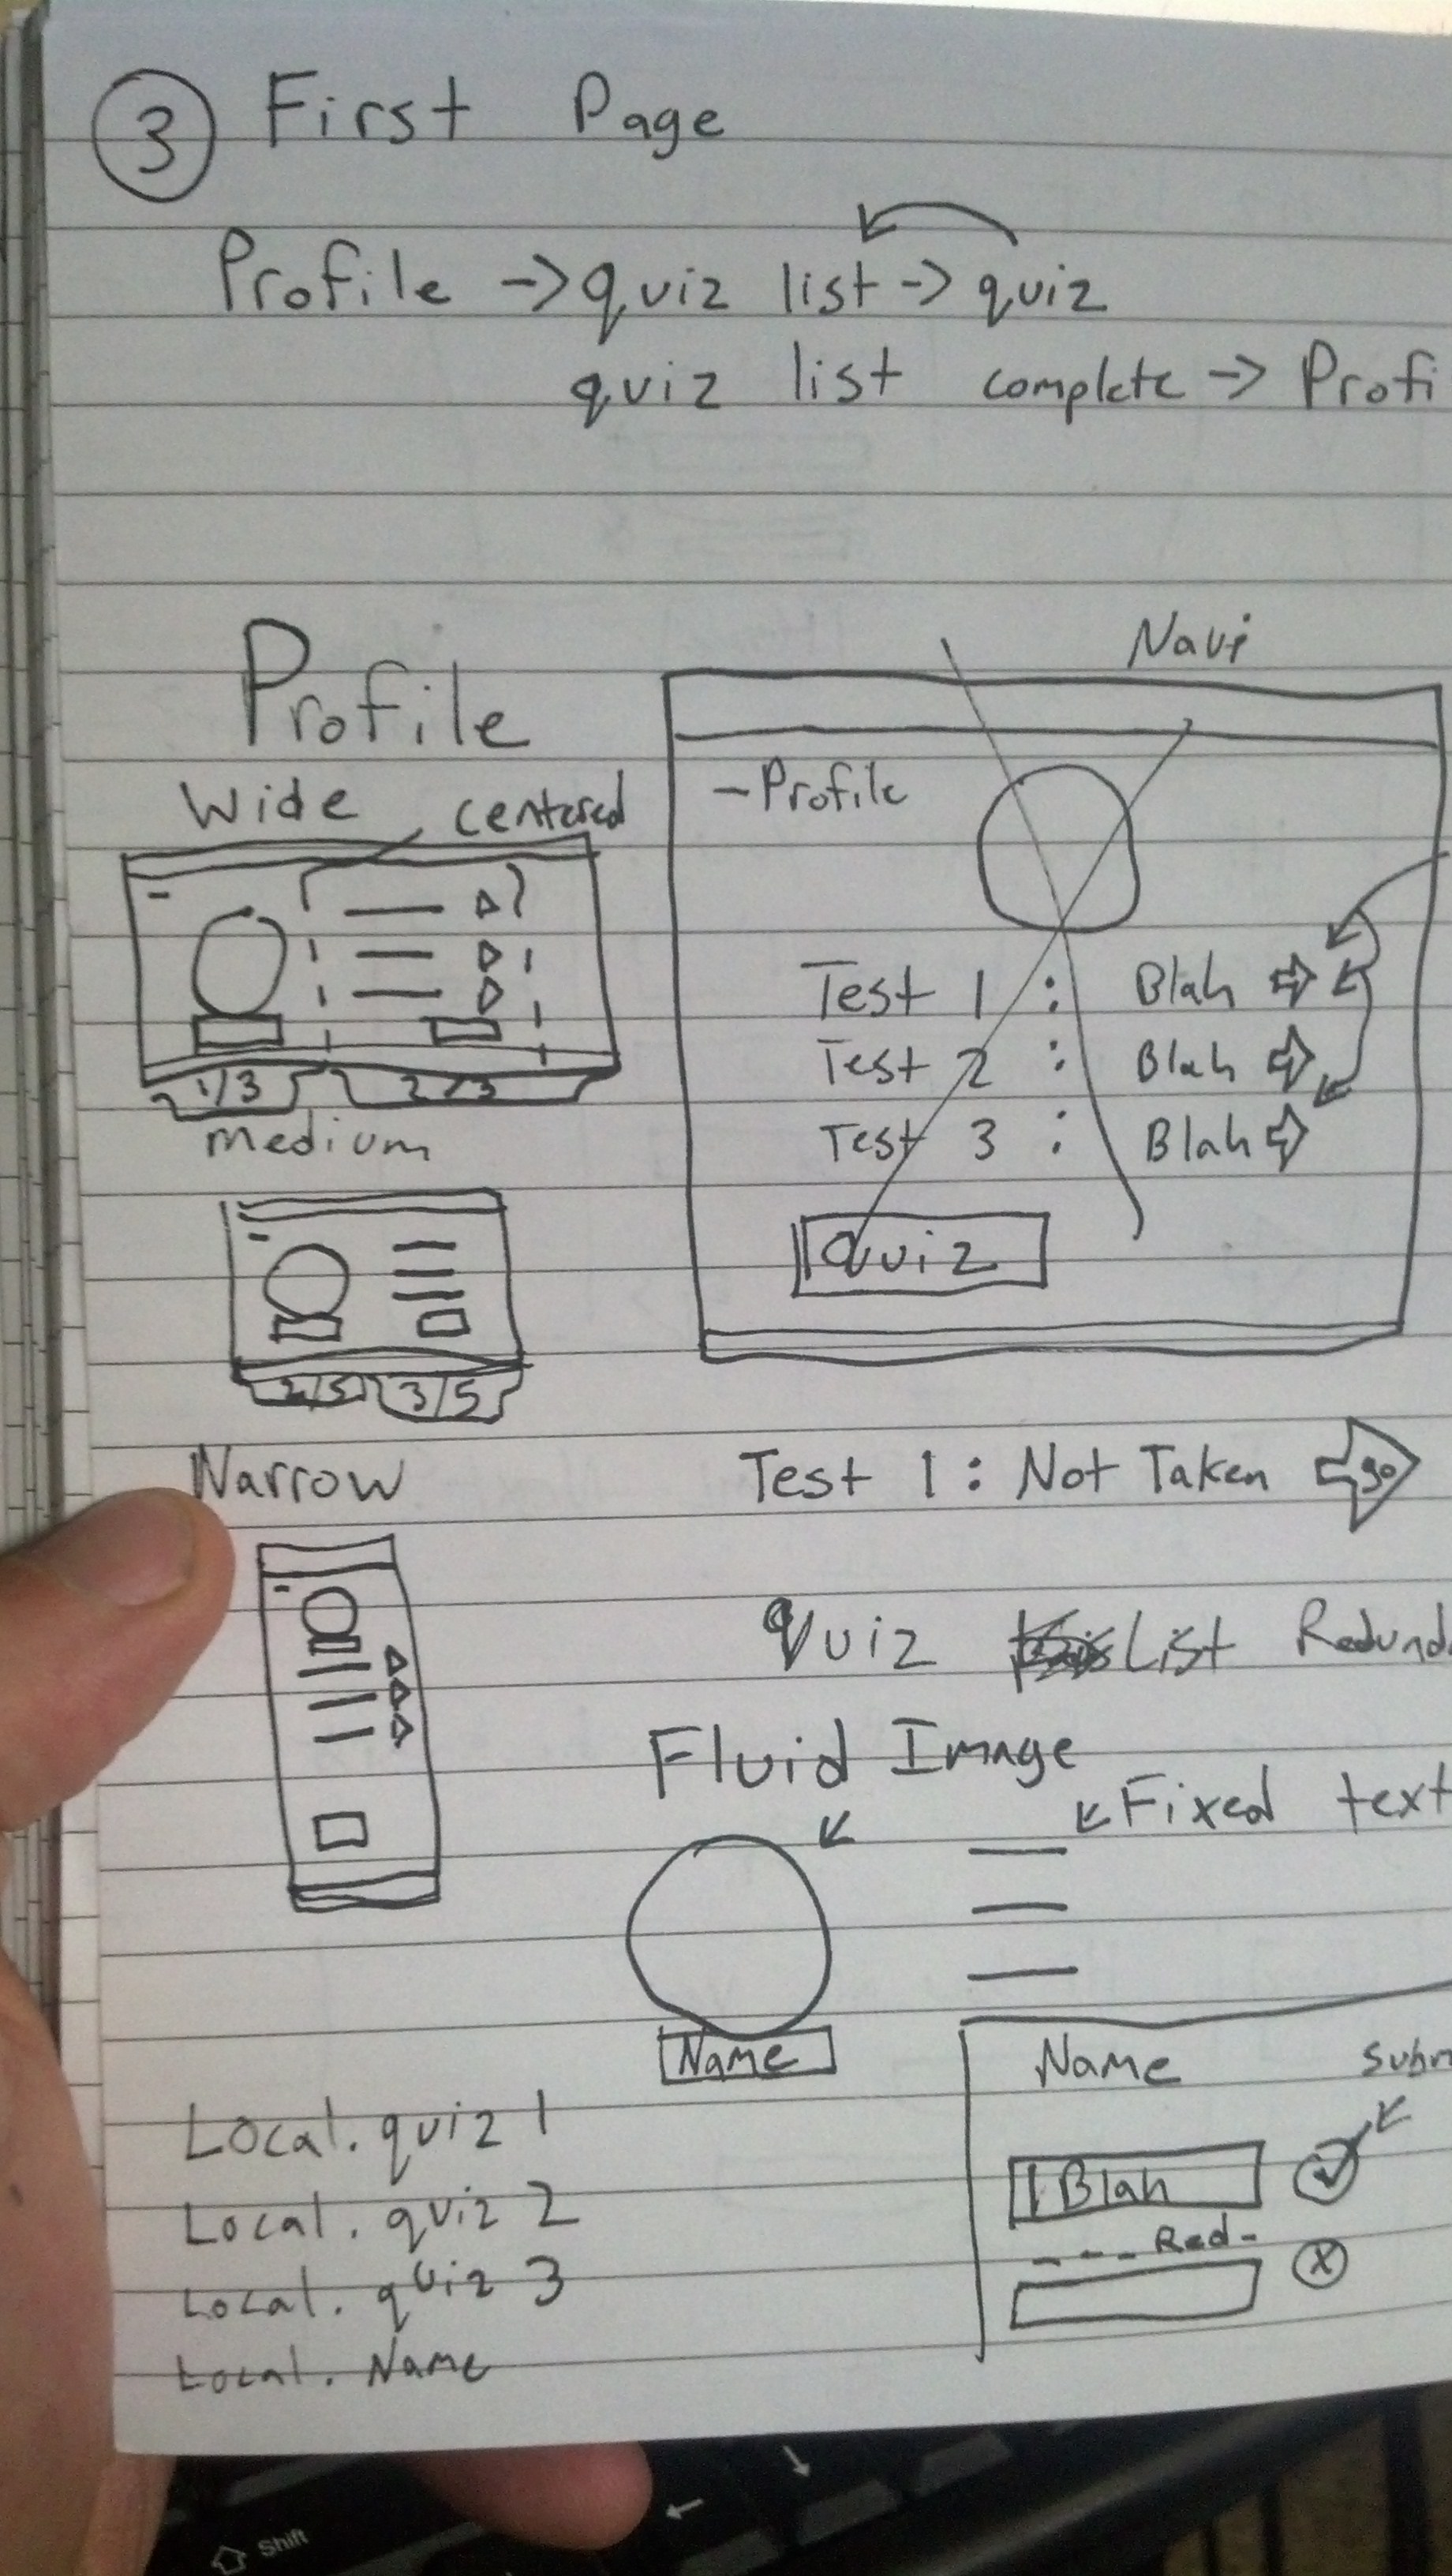 3 First Page
Profile -> quiz list -> quiz
quiz list complete -> Profi
Profile
Wide centered
1/3 2/3
medium
2/5 3/5
Narrow
Navi
-Profile
Test 1 : Blah
Test 2 : Blah
Test 3 : Blah
Quiz
Test 1 : Not Taken go
Quiz List Redund
Fluid Image
Fixed text
Name
Local. quiz 1
Local. quiz 2
Local. quiz 3
Local. Name
Name Subm
Blah
--- Red -
x
Shift